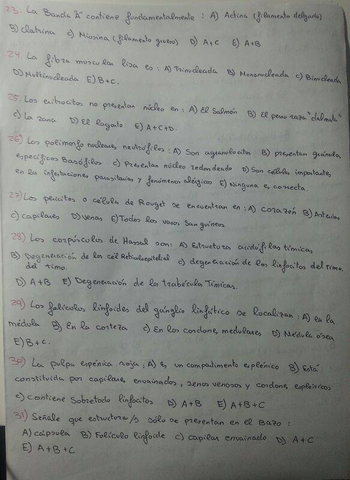 23. La Banda "A" contiene fundamentalmente: A) Actina (filamento delgado)
B) clatrina c) Miosina (filamento grueso) D) A+C E) A+B
24. La fibra muscular lisa es: A) Trinucleada B) Mononucleada c) Binucleada
D) Multinucleada E) B+C.
25. Los eritrocitos no presentan núcleo en: A) El Salmón B) El perro raza "dálmata"
c) La rana D) El lagarto E) A+C+D.
26) Los polimorfo nucleares neutrofilos: A) Son agranulocitos B) presentan granulos
específicos Basófilos c) Presentan núcleo redondeado D) Son células importantes
en las infestaciones parasitarias y fenómenos alérgicos E) Ninguna es correcta.
27) Los pericitos o célula de Rouget se encuentran en: A) Corazón B) Arterias
c) capilares D) venas E) Todos los vasos Sanguineos.
28) Los corpúsculos de Hassal son: A) Estructura acidófilas tímicas
B) Degeneración de las cel Reticuloepitelial c) degeneración de los linfocitos del timo
del timo.
D) A+B E) Degeneración de la trabécula Tímicas.
29) Los folículos linfoides del ganglio linfático se localizan: A) en la
médula B) En la corteza c) En los cordones medulares D) Médula ósea
E) B+C.
30) La pulpa esplénica roja; A) es un compartimento esplénico B) Está
constituida por capilares envainados, senos venosos y cordones esplénicos
c) contiene Sobretodo linfocitos D) A+B E) A+B+C
31) Señale que estructura/s sólo se presentan en el Bazo:
A) cápsula B) Folículo linfoide c) capilar envainado D) A+C
E) A+B+C